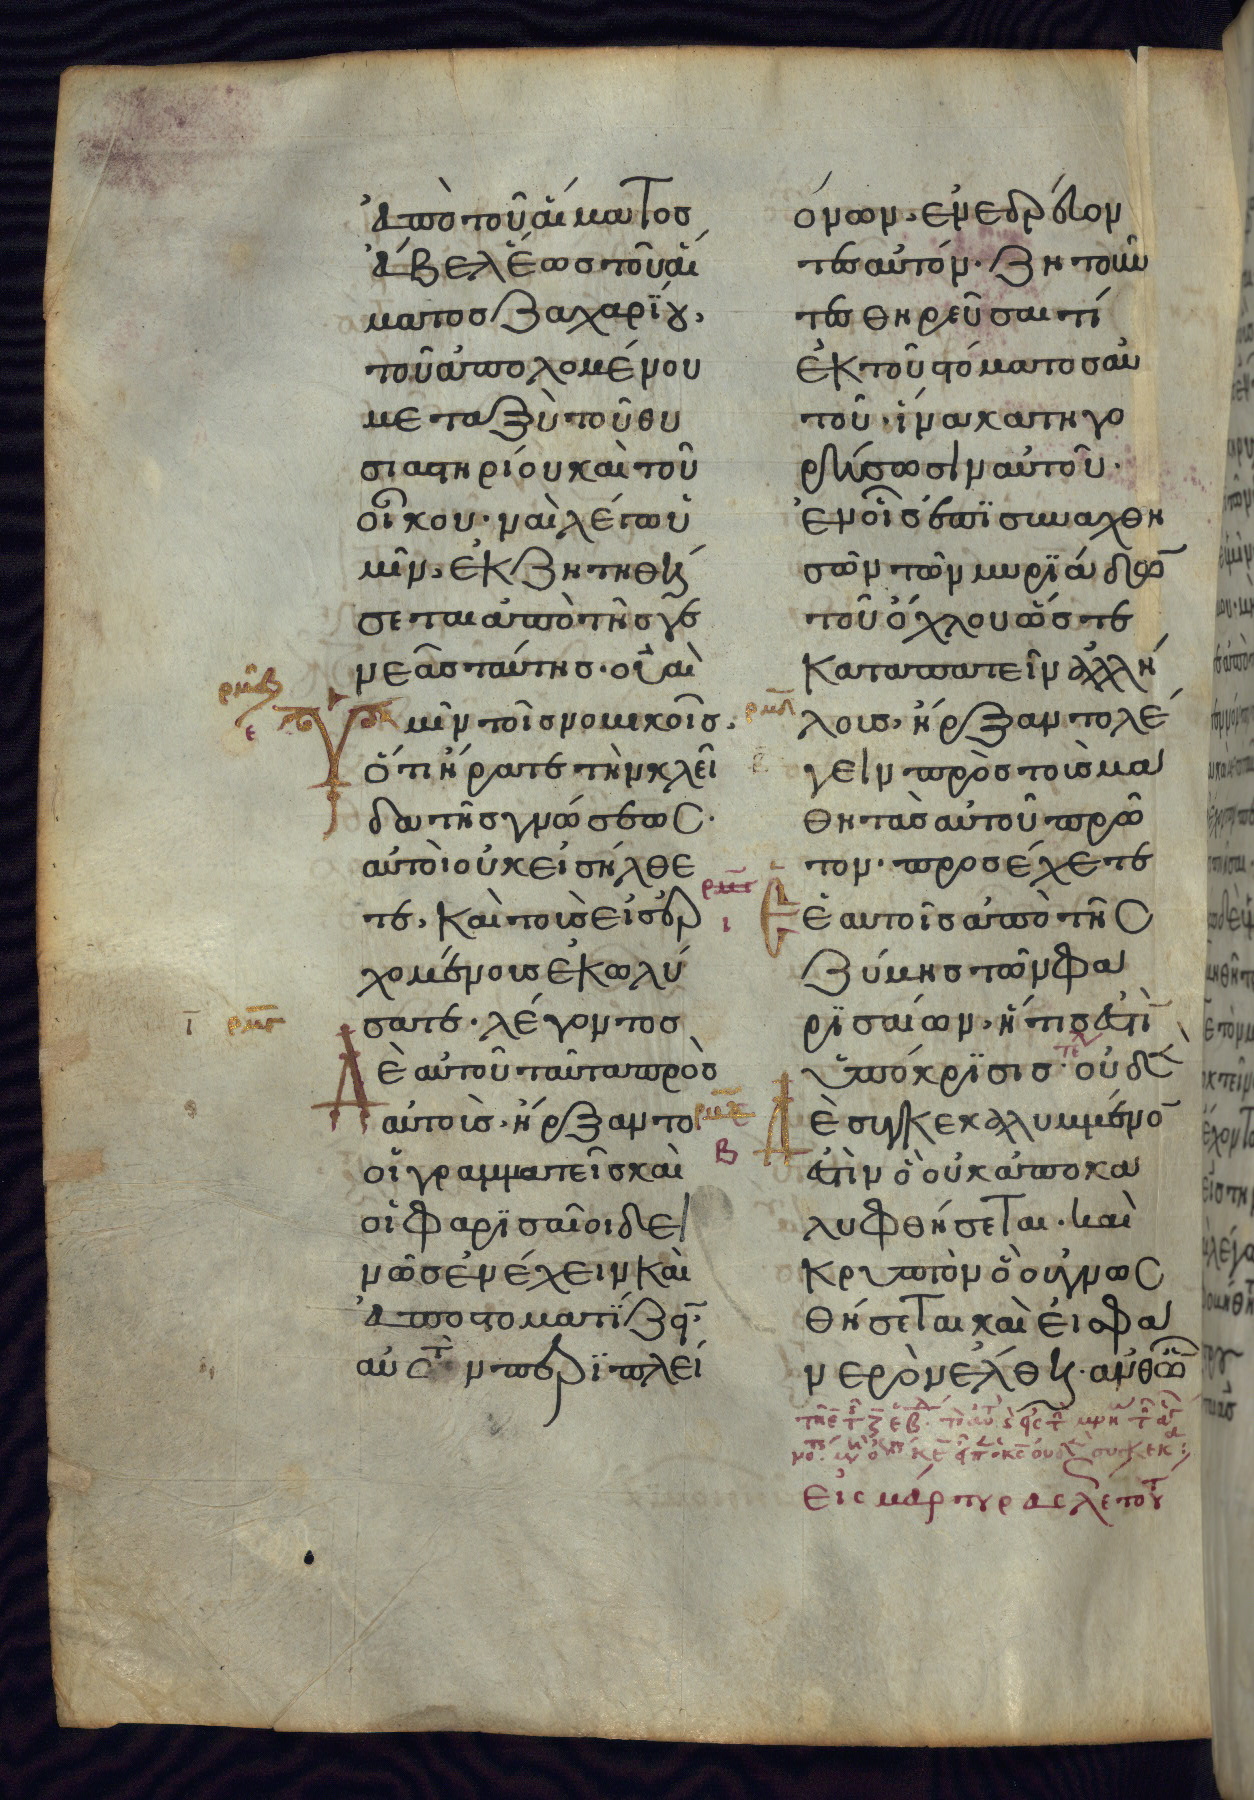 ἀπὸ τοῦ αἵματος
ἄβελ ἕως τοῦ αἵ
ματος ζαχαρΐου,
τοῦ ἀπολομένου
μεταξὺ τοῦ θυ
σιαστηρίου καὶ τοῦ
οἴκου· ναὶ λέγω ὑ
μῖν, ἐκζητηθή
σεται ἀπὸ τῆς γε
νεᾶς ταύτης· οὐαὶ
Υμῖν τοῖς νομικοῖς,
ὅτι ἤρατε τὴν κλεῖ
δα τῆς γνώσεως·
αὐτοὶ οὐκ εἰσήλθε
τε, καὶ τοὺς εἰσερ
χομένους ἐκωλύ
σατε· λέγοντος
Δὲ αὐτοῦ ταῦτα πρὸς
αὐτοὺς· ἤρξαντο
οἱ γραμματεῖς καὶ
οἱ φαρϊσαῖοι δει
νῶς ἐνέχειν καὶ
ἀποστοματΐζειν
αὐτὸν περΐ πλεί
όνων, ἐνεδρεύον
τες αὐτόν· ζητοῦν
τες θηρεῦσαι τί
ἐκ τοῦ στόματος αὐ
τοῦ· ἵνα κατηγο
ρήσωσιν αὐτοῦ·
ἐν οἷς ἐπϊσυναχθη
σῶν τῶν μυρϊάδων
τοῦ ὄχλου ὥστε
καταπατεῖν ἀλλή
λους, ἤρξαντο λέ
γειν πρὸς τοὺς μα
θητὰς αὐτοῦ πρῶ
τον· προσέχετε
Ἑαυτοῖς ἀπὸ τῆς
ζύμης τῶν φα
ρϊσαίων, ἥτις ἐστὶν
ὑπόκρϊσις· οὐδὲν
Δὲ συγκεκαλυμμένον
ἐστὶν ὃ οὐκ ἀποκα
λυφθήσεται· καὶ
κρυπτὸν ὃ οὐ γνως
θήσεται καὶ εἰ φα
νερὸν ἔλθη· ἀνθ ὧν
εἰς μάρτυρας λε τοῦ